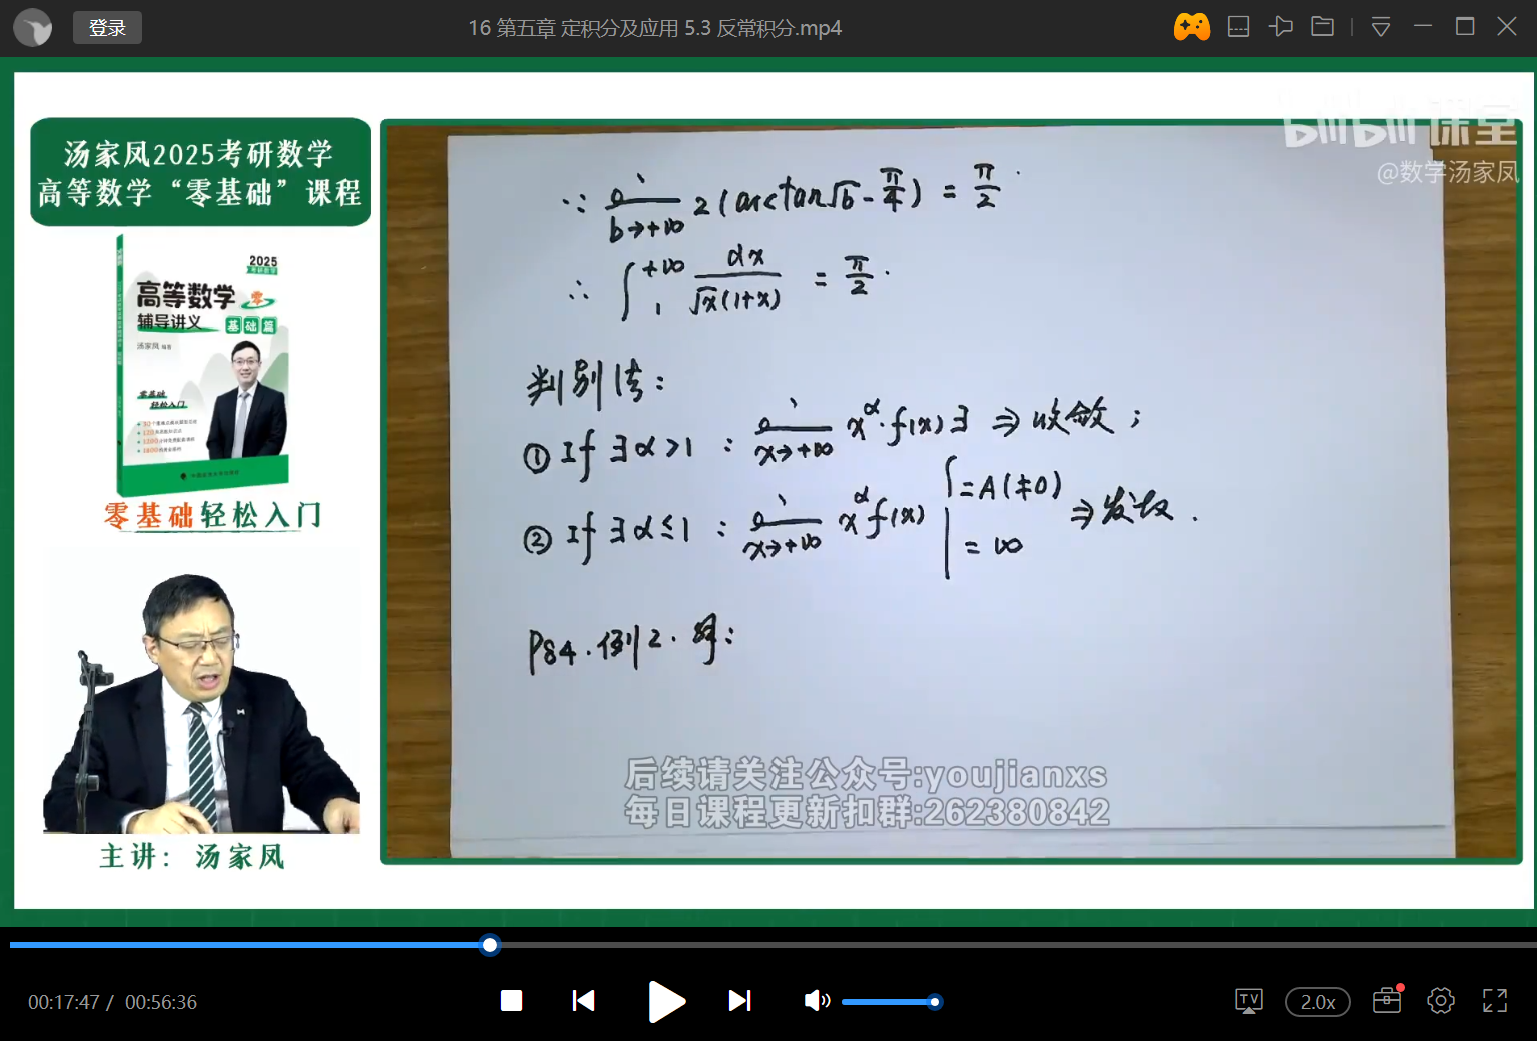 登录
16 第五章 定积分及应用 5.3 反常积分.mp4
汤家凤2025考研数学
高等数学“零基础”课程
2025
考研数学
高等数学 零
辅导讲义 基础篇
汤家凤 编著
零基础
轻松入门
零基础轻松入门
主讲：汤家凤
bilibili课堂
@数学汤家凤
∵ lim b→+∞ 2(arctan√b - π/4) = π/2.
∴ ∫₁^{+∞} dx/(√x(1+x)) = π/2.
判别法：
① If ∃α>1 : lim x→+∞ x^α·f(x)∃ ⇒ 收敛；
② If ∃α≤1 : lim x→+∞ x^α f(x) { =A(≠0) ⇒ 发散.
=∞
P84.例2.解：
后续请关注公众号:youjianxs
每日课程更新扣群:262380842
00:17:47 / 00:56:36
TV
2.0x